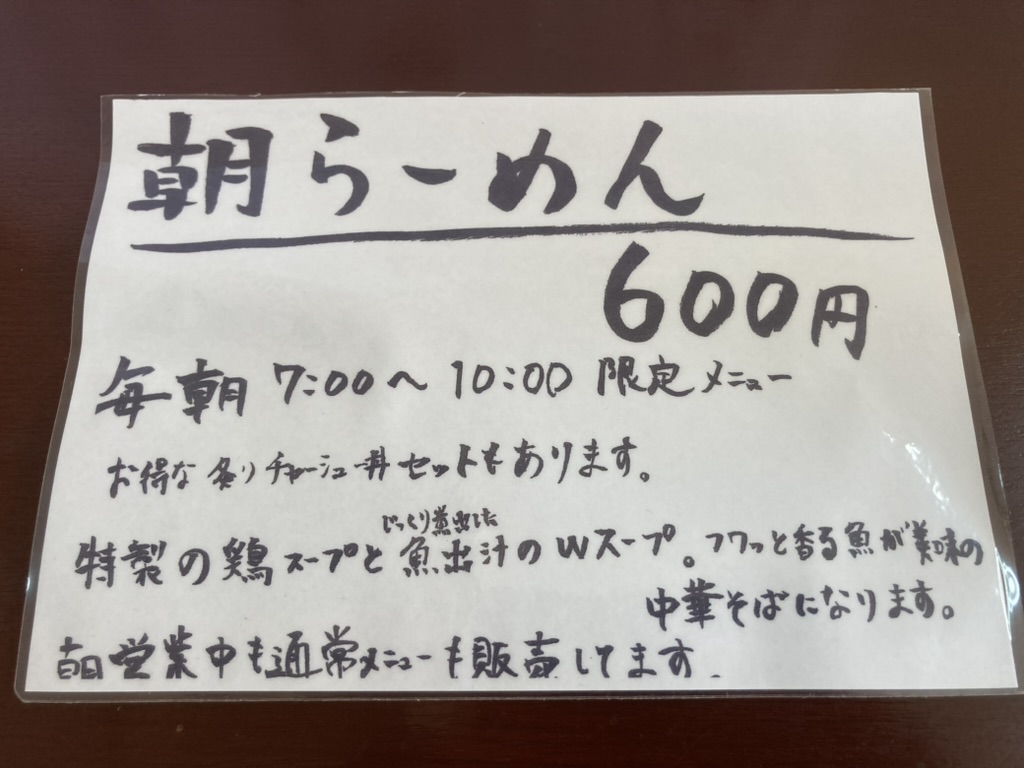 朝らーめん
600円
毎朝 7:00〜10:00 限定メニュー
お得な炙りチャーシュー丼セットもあります。
じっくり煮出した
特製の鶏スープと魚出汁のWスープ。フワッと香る魚が美味の
中華そばになります。
朝営業中も通常メニューも販売してます.